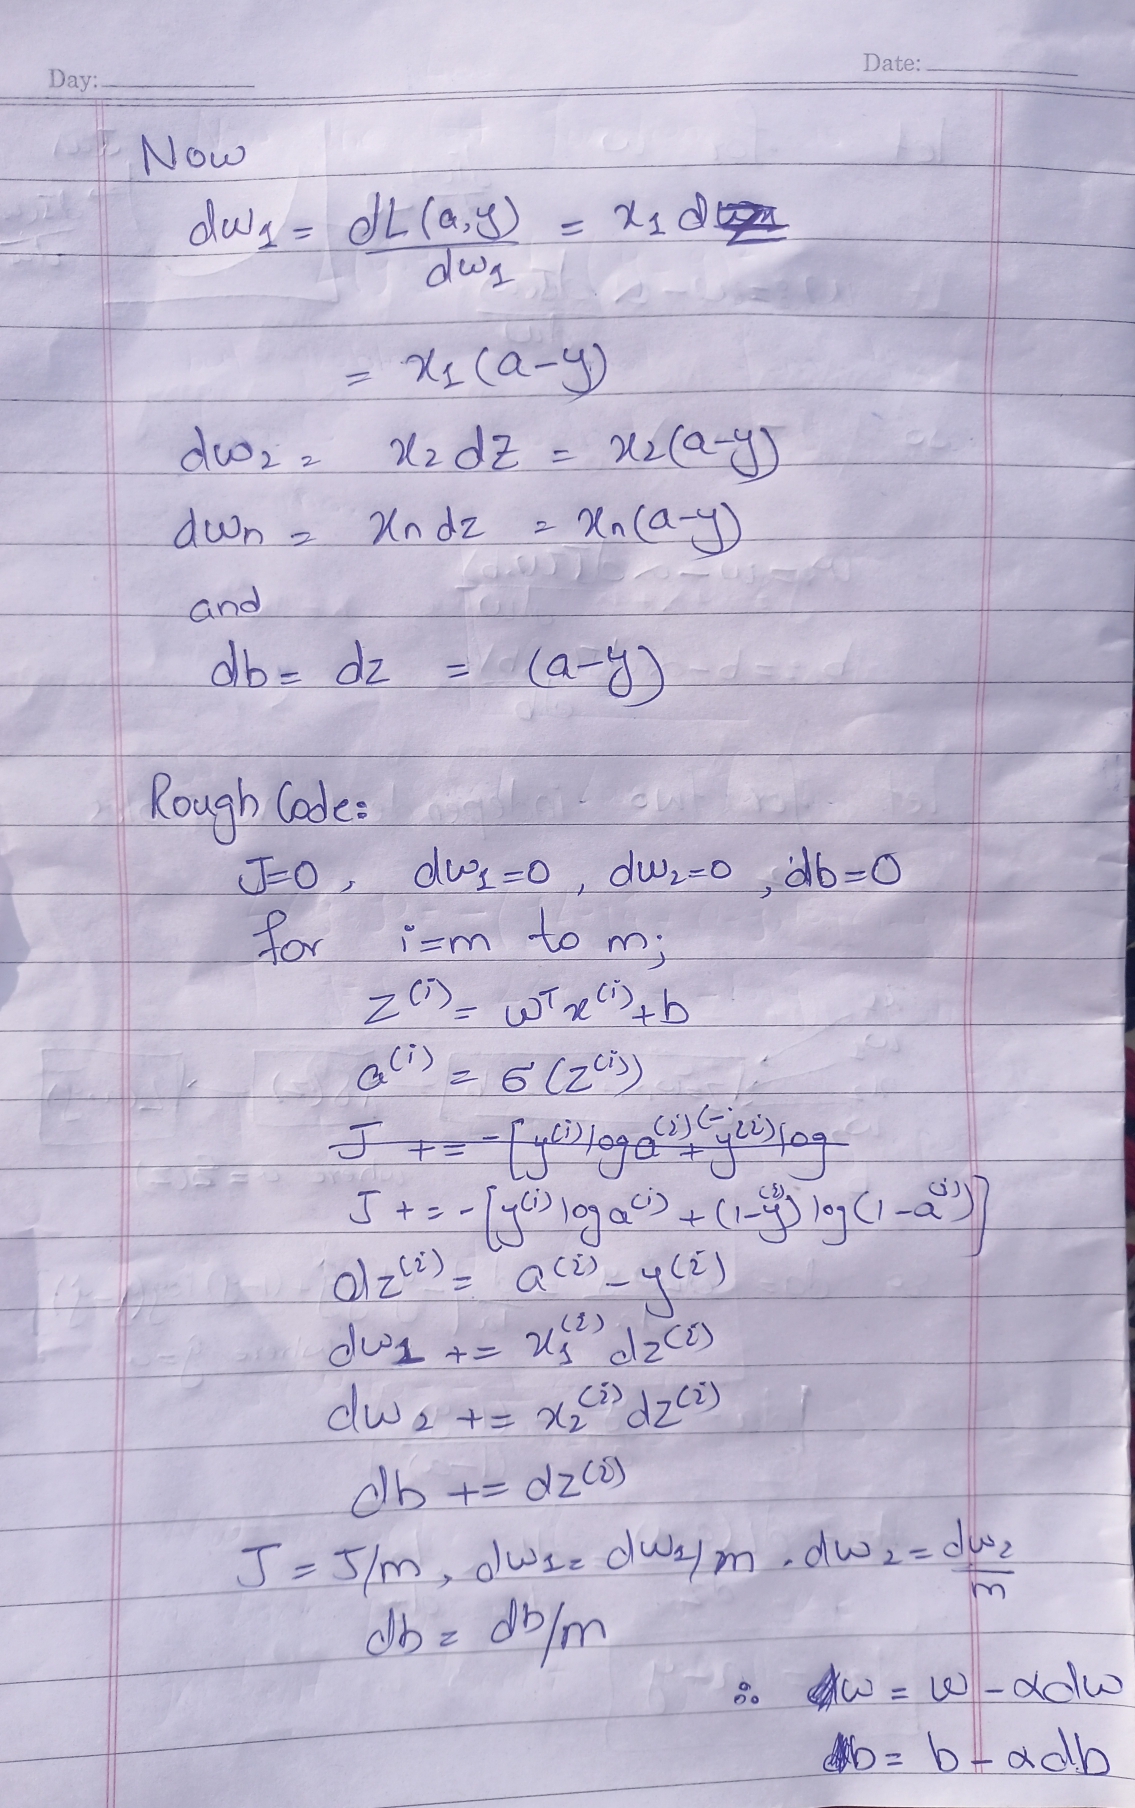 Day:
Date:
Now
dw₁ = dL(a,y)/dw₁ = x₁ d
= x₁(a-y)
dw₂ = x₂ dz = x₂(a-y)
dwn = xn dz = xn(a-y)
and
db = dz = (a-y)
Rough Code:
J=0, dw₁=0, dw₂=0, db=0
for i=m to m;
z⁽ⁱ⁾ = wᵀx⁽ⁱ⁾+b
a⁽ⁱ⁾ = σ(z⁽ⁱ⁾)
J += -[y⁽ⁱ⁾log a⁽ⁱ⁾ + y⁽ⁱ⁾log
J += -[y⁽ⁱ⁾ log a⁽ⁱ⁾ + (1-y⁽ⁱ⁾) log(1-a⁽ⁱ⁾)]
dz⁽ⁱ⁾ = a⁽ⁱ⁾ - y⁽ⁱ⁾
dw₁ += x₁⁽ⁱ⁾ dz⁽ⁱ⁾
dw₂ += x₂⁽ⁱ⁾ dz⁽ⁱ⁾
db += dz⁽ⁱ⁾
J = J/m, dw₁ = dw₁/m, dw₂ = dw₂/m
db = db/m
∴ w = w - αdw
b = b - αdb